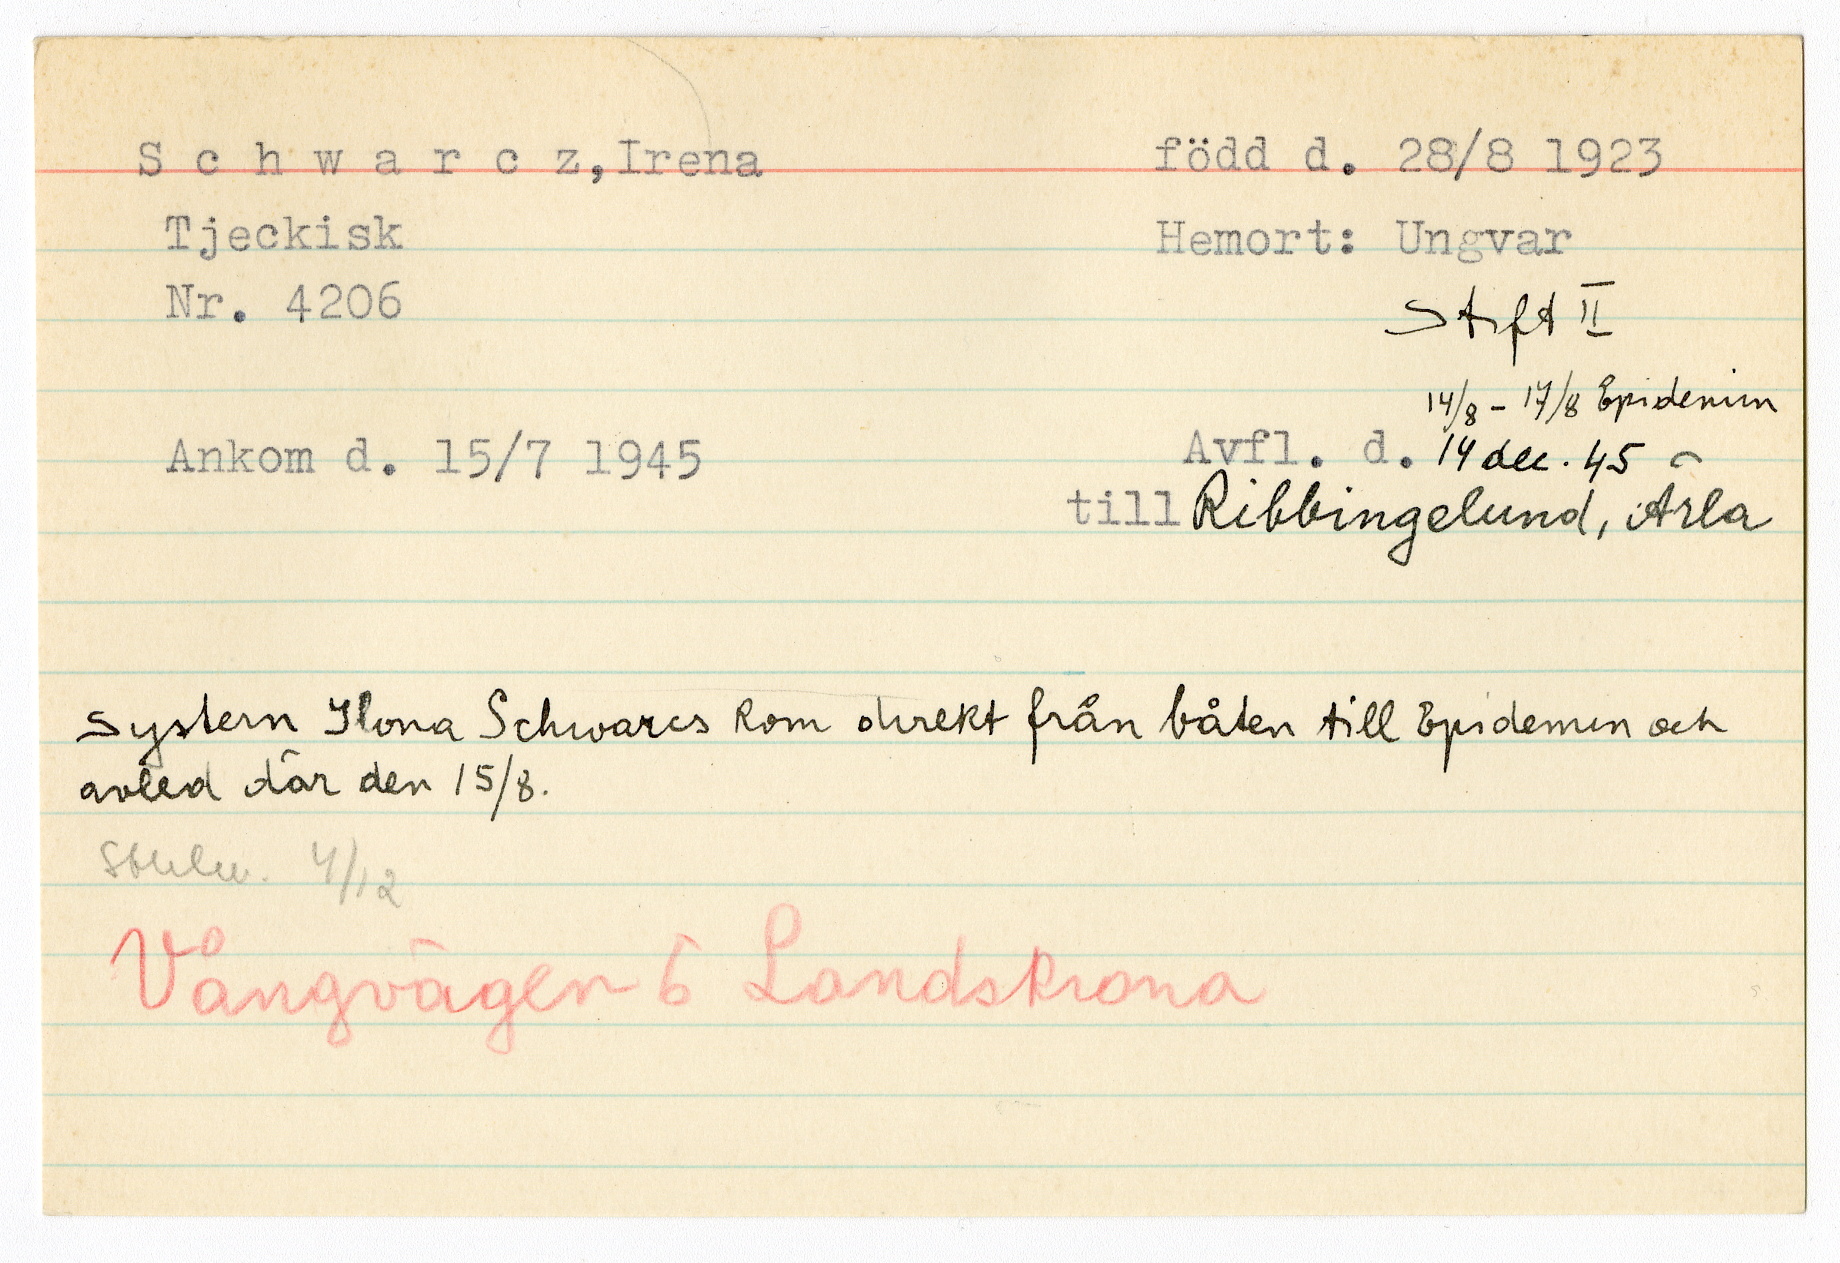 S c h w a r c z, Irena född d. 28/8 1923
Tjeckisk Hemort: Ungvar
Nr. 4206
Stift II
14/8 - 17/8 Epidemin
Ankom d. 15/7 1945 Avfl. d. 14 dec. 45
till Ribbingelund, Ärla
Systern Ilona Schwarcs kom direkt från båten till Epidemin och
avled där den 15/8.
4/12
Vångvägen 6 Landskrona